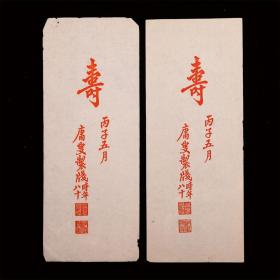 壽
丙子五月
庸叟製牋時年
八十
壽
丙子五月
庸叟製牋時年
八十